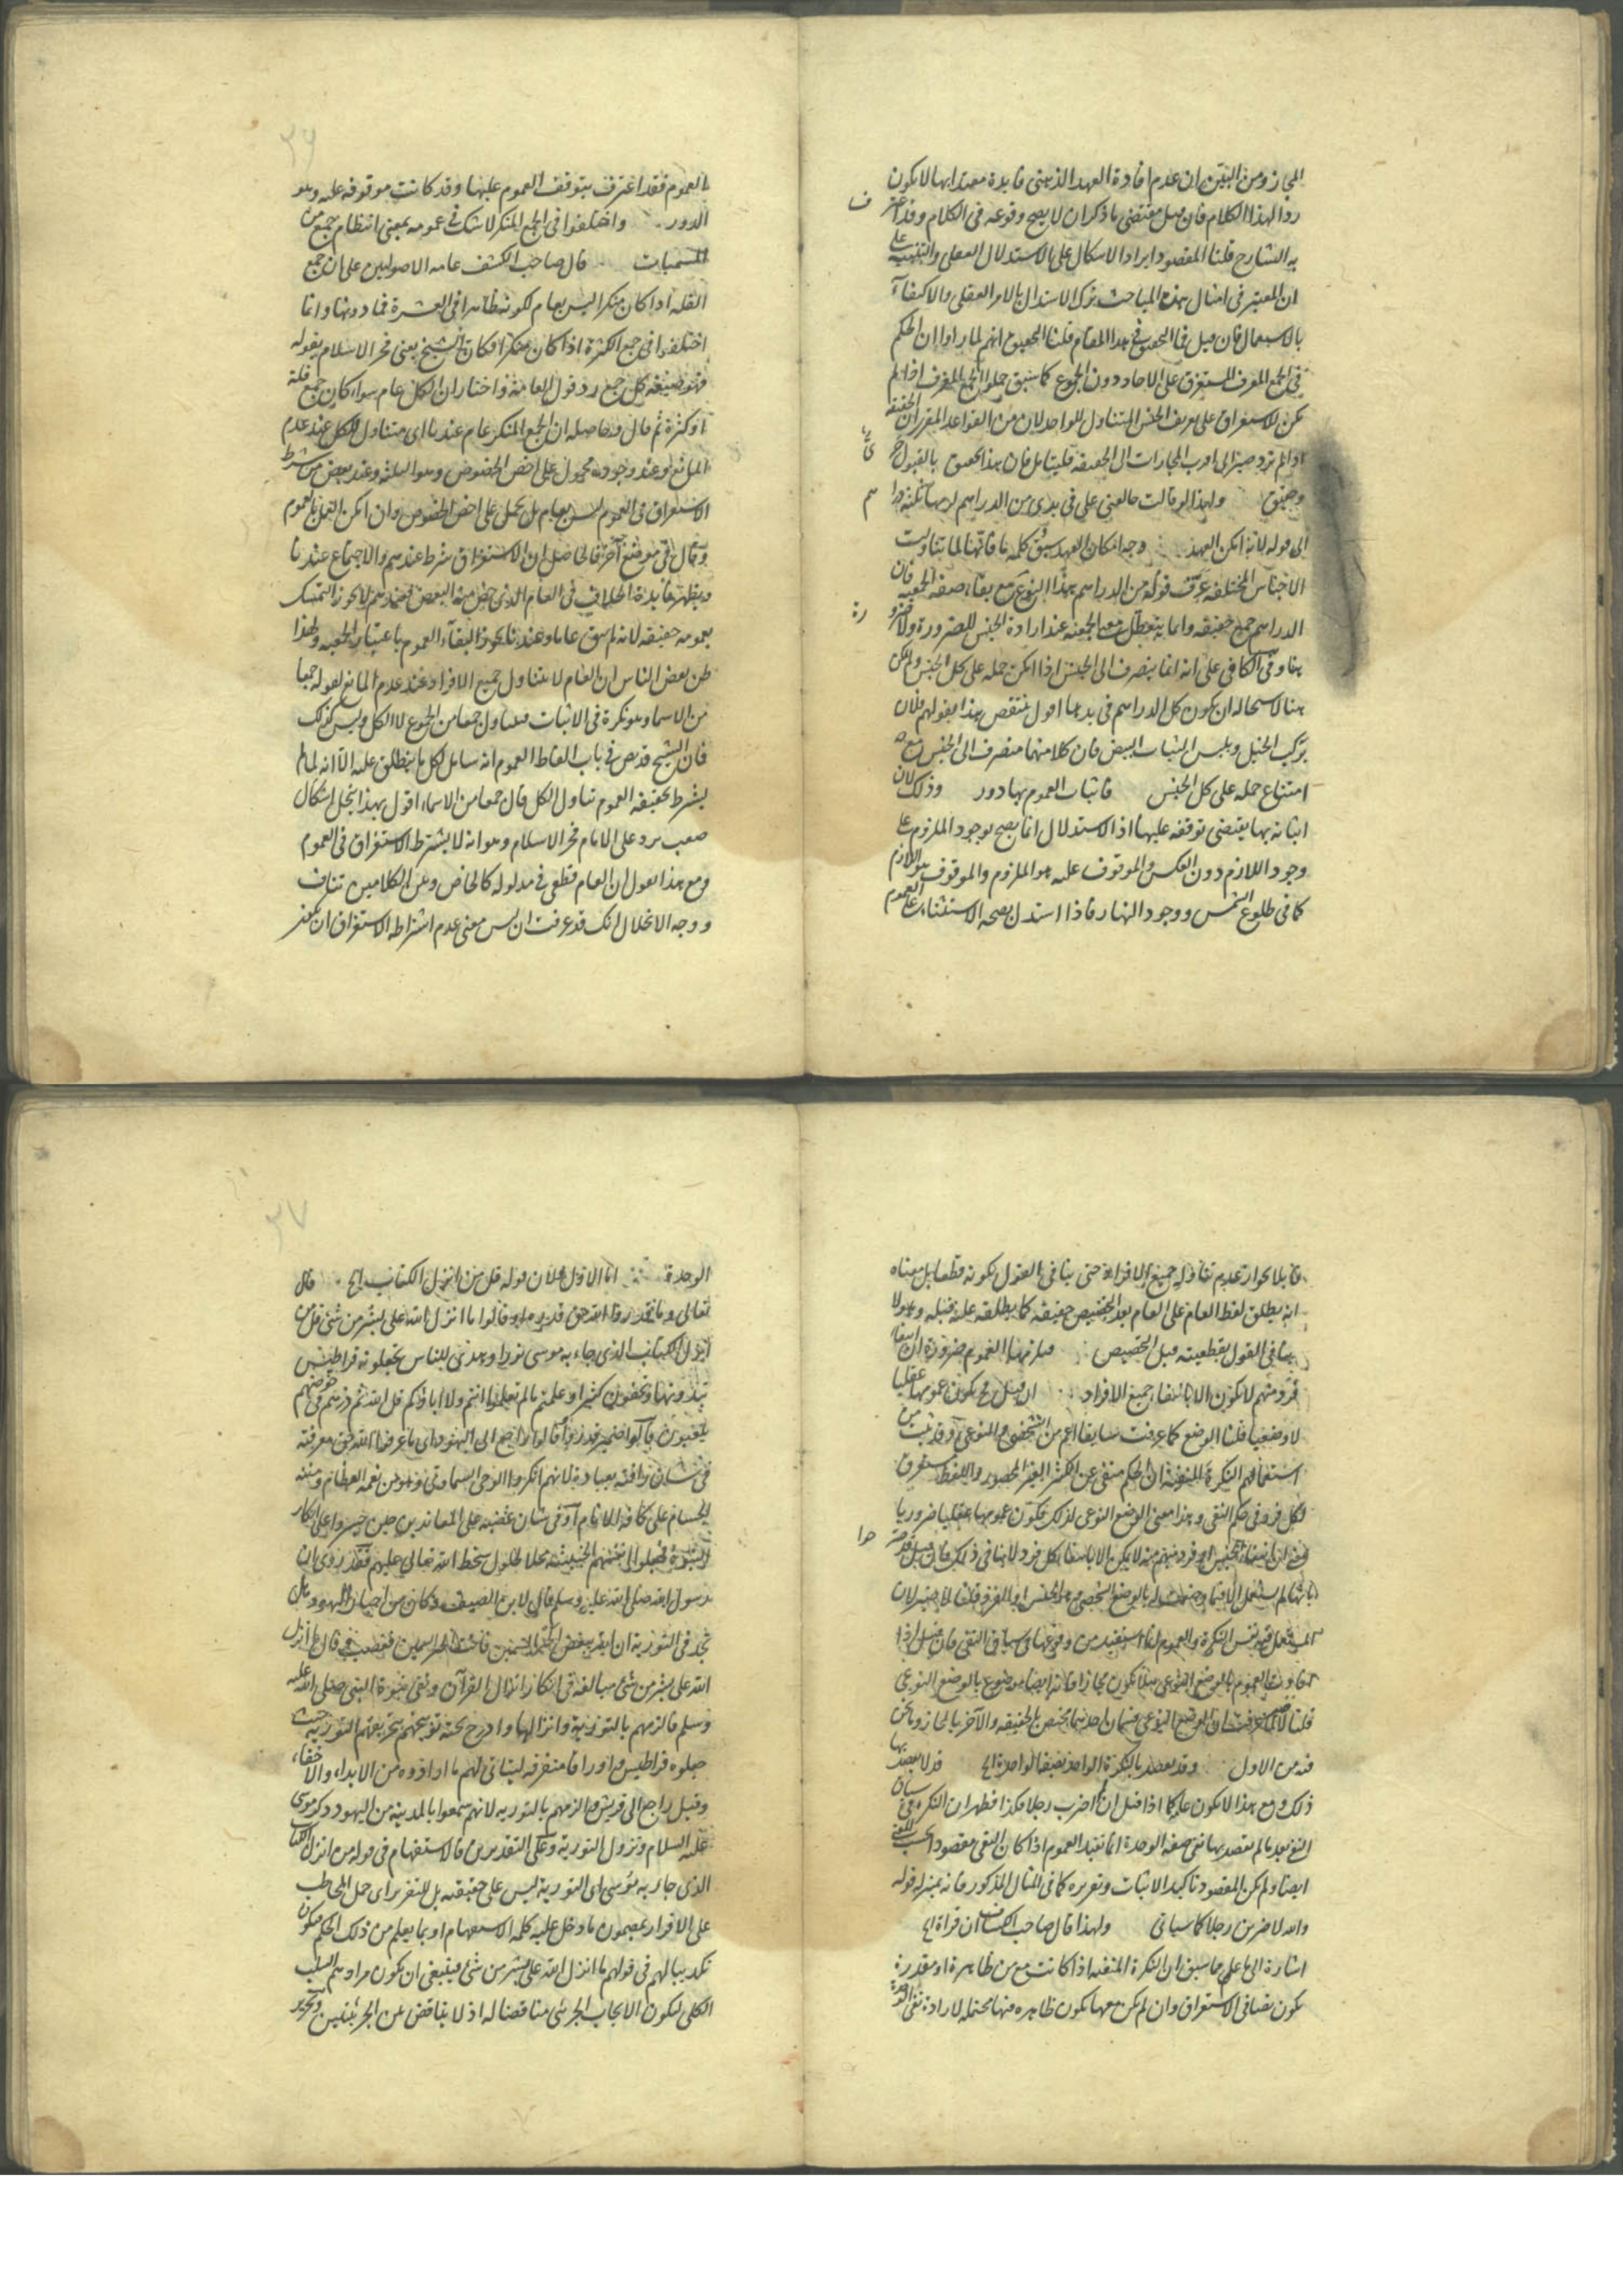 المجاز ومن البين ان عدم افادة العهد الذهنى فايدة معتدابها لا يكون
ردا لهذا الكلام فان قيل مقتضى ما ذكر ان لا يصح وقوعه فى الكلام وقد اعترف
به الشارح قلنا المقصود ايراد الاشكال على الاستدلال العقلى والتنبيه على
ان المعتبر فى امثال هذه المباحث ترك الاستدلال بالامر العقلى والاكتفاء
بالاستعمال فان قيل فما التحقيق فى هذا المقام قلنا التحقيق انهم لما راوا ان الحكم
فى الجمع المعرف المستغرق على الاحاد دون الجموع كما سبق حملوا الجمع المعرف اذا لم
يمكن الاستغراق على تعريف الجنس المتناول للواحد لان من القواعد المقررة ان الحقيقة
اذا لم ترد صير الى اقرب المجازات الى الحقيقة فليتامل فان هذا تحقيق بالقبول حرى
وحقيق ولهذا لو قالت خالعنى على ما فى يدى من الدراهم
الى قوله لانه امكن العهد وجه امكان العهد سبق كلمة ما فانها لما تناولت
الاجناس المختلفة عرف قوله من الدراهم هذا النوع مع بقاء صفة الجمعية فان
الدراهم جمع حقيقة وانما يتعطل معنى الجمعية عند ارادة الجنس للضرورة ولا ضرورة
هنا وفى الكافى على انه انما ينصرف الى الجنس اذا امكن حمله على كل الجنس ولم يمكن
هنا لاستحالة ان يكون كل الدراهم فى يدها اقول ينتقض هذا بقولهم فلان
يركب الخيل ويلبس الثياب البيض فان كلا منهما منصرف الى الجنس مع
امتناع حمله على كل الجنس فاثبات العموم بها دور وذلك لان
اثباته بها يقتضى توقفه عليها اذ الاستدلال انما يصح بوجود الملزوم على
وجود اللازم دون العكس والموقوف عليه هو الملزوم والموقوف هو اللازم
كما فى طلوع الشمس ووجود النهار فاذا استدل بصحة الاستثناء على العموم
العموم فقد اعترف بتوقف العموم عليها وقد كانت موقوفة عليه وهو
الدور واختلفوا فى الجمع المنكر لا شك فى عمومه بمعنى انتظام جمع من
المسميات قال صاحب الكشف عامة الاصوليين على ان جمع
القلة اذا كان منكرا ليس بعام لكونه ظاهرا فى العشرة فما دونها وانما
اختلفوا فى جمع الكثرة اذا كان منكرا فكان الشيخ يعنى فخر الاسلام بقوله
فهو صيغة كل جمع رد قول العامة واختار ان الكل عام سواء كان جمع قلة
او كثرة ثم قال وحاصله ان الجمع المنكر عام عندنا اى متناول للكل عند عدم
المانع وعند وجوده محمول على اخص الخصوص وهو الثلثة وعند بعض من شرط
الاستغراق فى العموم ليس بعام بل يحمل على اخص الخصوص وان امكن العمل بالعموم
وقال فى موضع آخر فالحاصل ان الاستغراق شرط عندهم والاجتماع عندنا
ويظهر فايدة الخلاف فى العام الذى خص منه البعض فعندهم لا يجوز التمسك
بعمومه حقيقة لانه لم يبق عاما وعندنا يجوز لبقاء العموم باعتبار الجمعية ولهذا
ظن بعض الناس ان العام لا يتناول جميع الافراد عند عدم المانع لقوله جمعا
من الاسماء وهو نكرة فى الاثبات فيتناول جمعا من الجموع لا الكل وليس كذلك
فان الشيخ قد نص فى باب الفاظ العموم انه شامل لكل ما ينطلق عليه الا انه لما لم
يشترط لحقيقة العموم تناول الكل قال جمعا من الاسماء اقول بهذا ينحل اشكال
صعب يرد على الامام فخر الاسلام وهو انه لا يشترط الاستغراق فى العموم
ومع هذا يقول ان العام قطعى فى مدلوله كالخاص وبين الكلامين تناف
ووجه الانحلال انك قد عرفت ان ليس معنى عدم اشتراطه الاستغراق ان يكون
٣٦
قابلا بجواز عدم تناوله جميع الافراد حتى ينافى القول بكونه قطعيا بل معناه
انه يطلق لفظ العام على العام بعد التخصيص حقيقة كما يطلقه عليه قبله وهو لا
ينافى القول بقطعيته قبل التخصيص عمومها العموم ضرورة ان انتفاء
فرد مبهم لا يكون الا بانتفاء جميع الافراد ان قيل فح يكون عمومها عقليا
لا وضعيا قلنا الوضع كما عرفت سابقا اعم من الشخصى والنوعى وقد ثبت من
استعمالهم النكرة المنفية ان الحكم منفى عن الكثير الغير المحصور واللفظ مستغرق
لكل فرد فى حكم النفى وهذا معنى الوضع النوعى لذلك فكون عمومها عقليا ضروريا
بمعنى ان انتفاء الجنس او فرد مبهم منه لا يمكن الا بانتفاء كل فرد لا ينافى ذلك
فان قيل اذا
قلنا لا لما عرفت ان الوضع النوعى قسمان احدهما يختص بالحقيقة والآخر بالمجاز وما نحن
فيه من الاول وقد يقصد بالنكرة الواحد بصفة الواحدة الخ قد لا يقصد بها
ذلك ومع هذا لا يكون عاما كما اذا قيل ان لم اضرب رجلا فكذا فظهر ان النكرة فى سياق
النفى بعد ما لم يقصد بها نفى صفة الوحدة انما تفيد العموم اذا كان النفى مقصودا بحسب المعنى
ايضا ولم يكن المقصود تاكيد الاثبات وتقريره كما فى المثال المذكور فانه بمنزلة قوله
والله لاضربن رجلا كما سياتى ولهذا قال صاحب الكشاف ان قراءة الخ
اشارة الى ما علم مما سبق ان النكرة المنفية اذا كانت مع من ظاهرة او مقدرة
يكون نصا فى الاستغراق وان لم يكن معها يكون ظاهره فيها محتملة لارادة نفى الوحدة
الوحدة اما الاول فلان قوله قل من انزل الكتاب الخ قال
تعالى وما قدروا الله حق قدره اذ قالوا ما انزل الله على بشر من شئ قل من
انزل الكتاب الذى جاء به موسى نورا وهدى للناس تجعلونه قراطيس
تبدونها وتخفون كثيرا وعلمتم ما لم تعلموا انتم ولا اباؤكم قل الله ثم ذرهم فى خوضهم
يلعبون قالوا ضمير قدروا وقالوا راجع الى اليهود اى ما عرفوا الله حق معرفته
فى شان رافته بعباده لانهم انكروا الوحى السماوى وهو من نعمه العظام ومننه
الجسام على كافة الانام او فى شان غضبه على المعاندين حين جسروا على انكار
النبوة فجعلوا انفسهم الخبيثة محلا لحلول سخط الله تعالى عليهم فقد روى ان
رسول الله صلى الله عليه وسلم قال لابن الصيف وكان من احبار اليهود هل
تجد فى التورية ان الله يبغض الحبر السمين فانت الحبر السمين فغضب فقال ما انزل
الله على بشر من شئ مبالغة فى انكار انزال القرآن ونفى نبوة النبى صلى الله عليه
وسلم فالزمهم بالتورية وانزالها وادرج تحته توبيخهم بتحريفهم التورية حيث
جعلوه قراطيس واوراقا متفرقة ليتاتى لهم ما ارادوه من الابداء والاخفاء
وقيل راجع الى قريش والزمهم بالتورية لانهم سمعوا بالمدينة من اليهود ذكر موسى
عليه السلام ونزول التورية وعلى التقديرين فالاستفهام فى قوله من انزل الكتاب
الذى جاء به موسى اى التورية ليس على حقيقته بل للتقرير اى حمل المخاطب
على الاقرار بمضمون ما دخل عليه كلمة الاستفهام او بما يعلم من ذلك الحكم فيكون
تكذيبا لهم فى قولهم ما انزل الله على بشر من شئ فينبغى ان يكون مرادهم السلب
الكلى ليكون الايجاب الجزئى مناقضا له اذ لا يتناقض بين الجزئيتين
٣٧